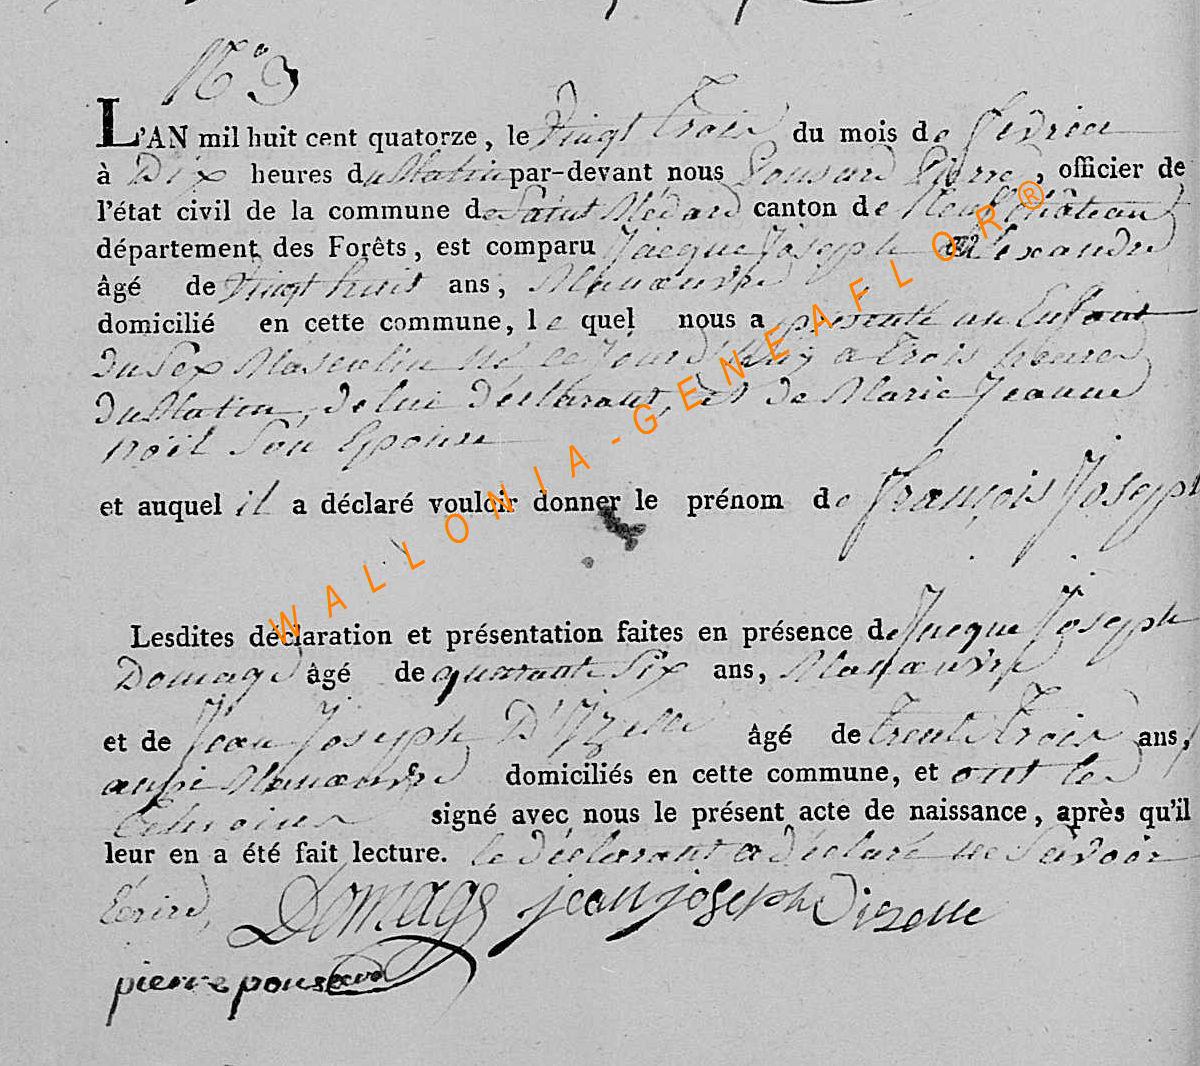 N° 3
L'AN mil huit cent quatorze, le Vingt Trois du mois de fevrier
à Dix heures du Matin par-devant nous Pousard Pierre, officier de
l'état civil de la commune de Saint Médard canton de Neufchâteau
département des Forêts, est comparu Jacque Joseph Alexandre
âgé de Vingt huit ans, Manœuvre
domicilié en cette commune, le quel nous a présenté un Enfant
du Sex Masculin né ce Jour d'Huy a trois heures
du Matin, de lui déclarant, et de Marie Jeanne
Noël Son Epouse
et auquel il a déclaré vouloir donner le prénom de François Joseph
Lesdites déclaration et présentation faites en présence de Jacque Joseph
Domage âgé de quarante Six ans, Manœuvre
et de Jean Joseph D'Izelle âgé de trente Trois ans,
aussi Manœuvre domiciliés en cette commune, et ont les
témoins signé avec nous le présent acte de naissance, après qu'il
leur en a été fait lecture. le déclarant a déclaré ne Savoir
Ecrire,
Domage jean joseph Dizelle
pierre pousard
WALLONIA-GENEAFLOR®